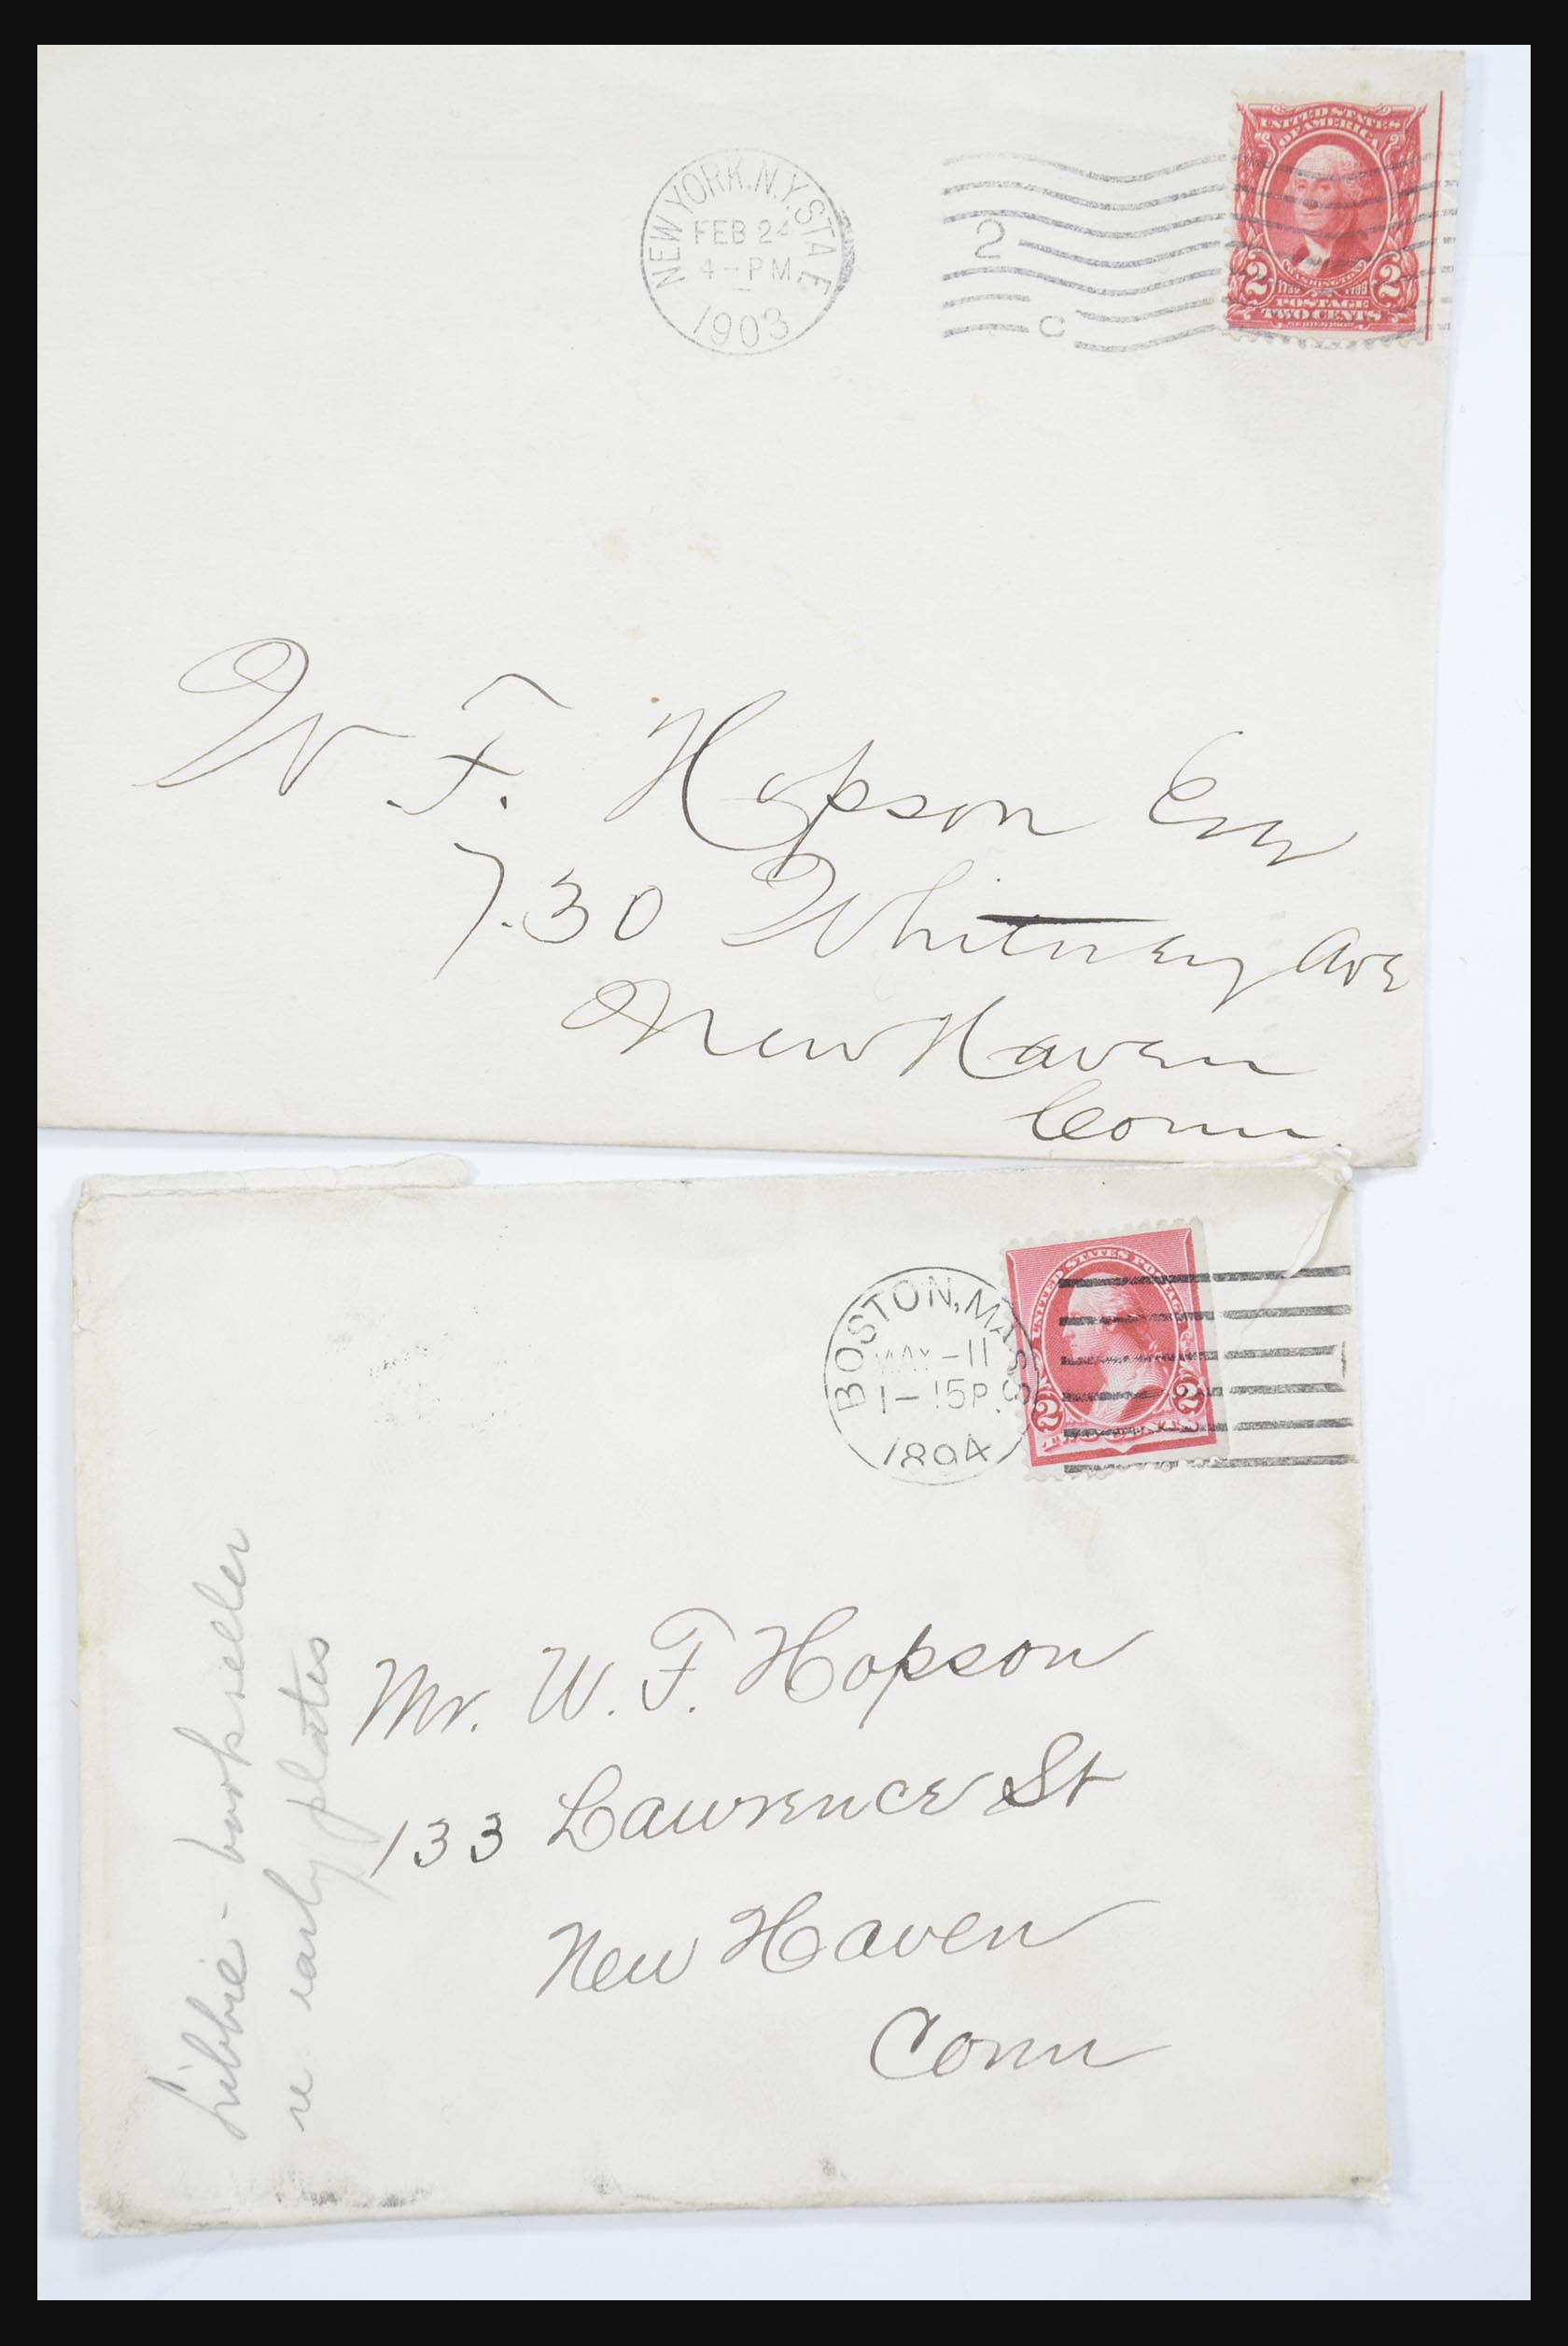 NEW YORK, N.Y. STA E
FEB 24
4-PM
1903
2
C
UNITED STATES
OF AMERICA
WASHINGTON
2 2
POSTAGE
TWO CENTS
SERIES 1902
W. F. Hopson Esq
730 Whitney Ave
New Haven
Conn.
BOSTON, MASS.
MAY-11
1-15P
1894
UNITED STATES POSTAGE
2 2
TWO CENTS
Mr. W. F. Hopson
133 Lawrence St
New Haven
Conn
Libbie - bookseller
re early plates